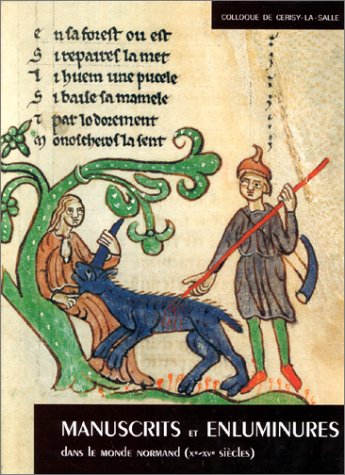 COLLOQUE DE CERISY-LA-SALLE
en sa forest ou est
Si repaires la met
Li huem une pucele
Si baise sa mamele
Et par lodorement
Monoscheros la sent
MANUSCRITS ET ENLUMINURES
DANS LE MONDE NORMAND (Xe-XVe SIÈCLES)